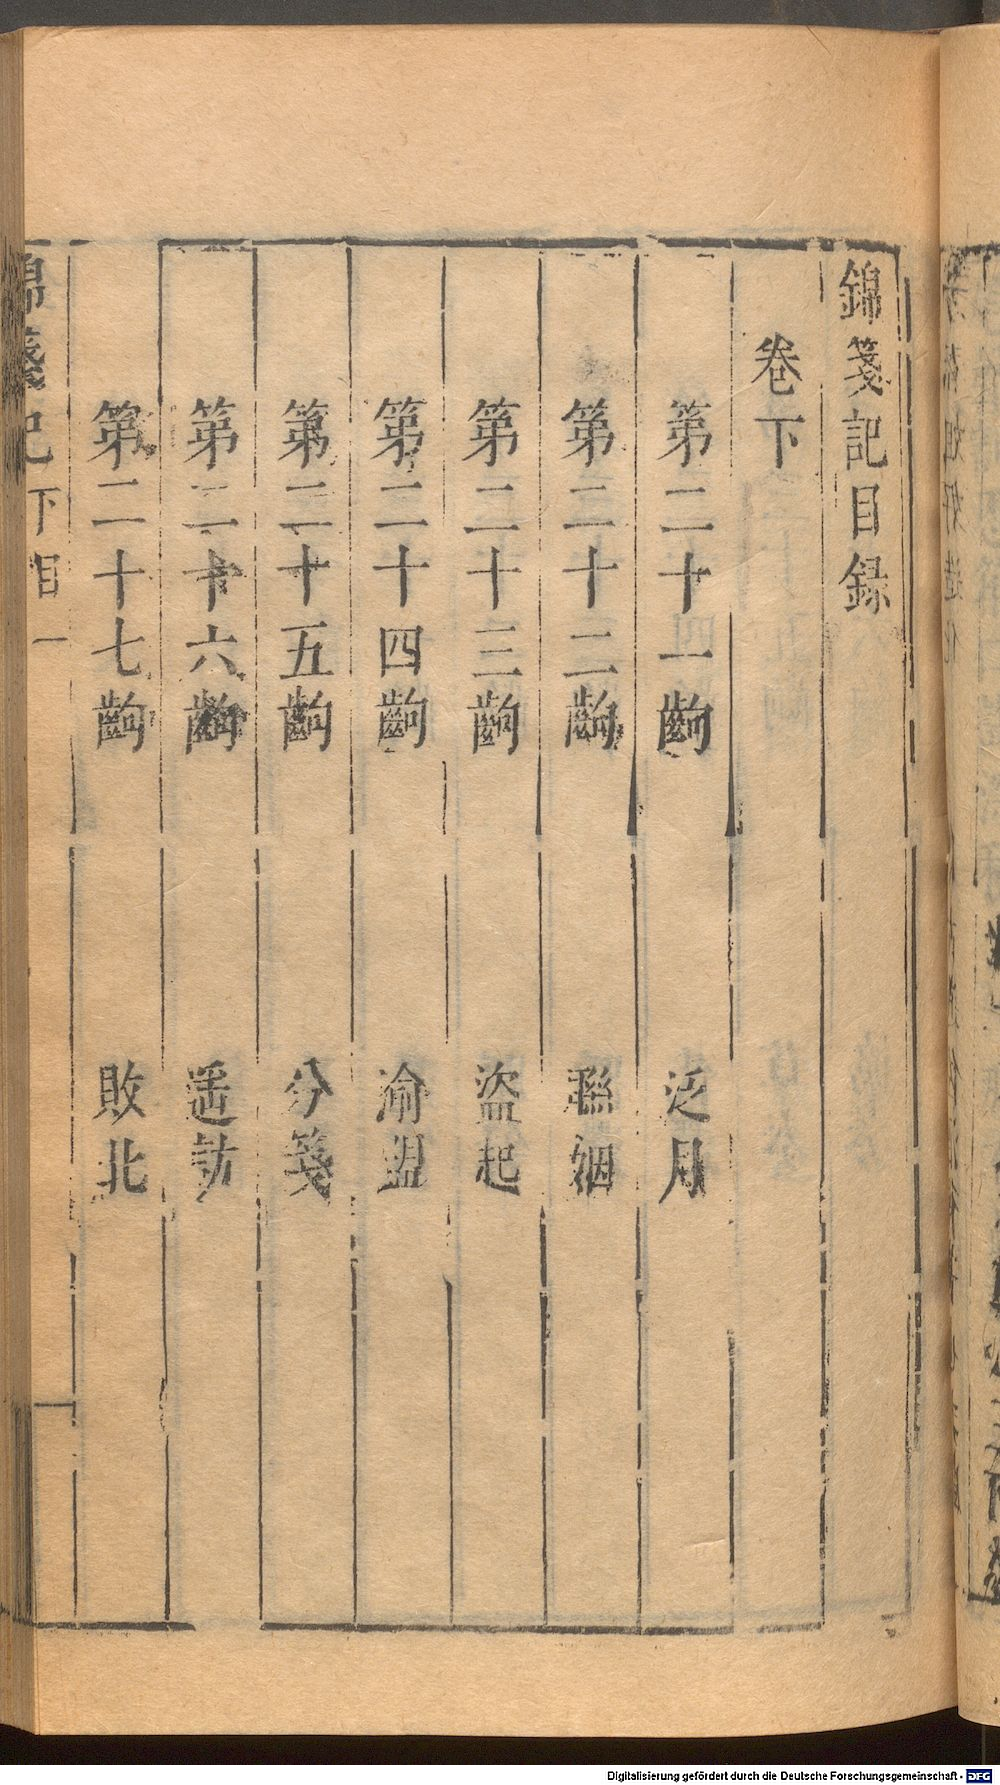 錦箋記目録
卷下
第二十一齣 泛月
第二十二齣 聯姻
第二十三齣 盜起
第二十四齣 渝盟
第二十五齣 分箋
第二十六齣 遥訪
第二十七齣 敗北
錦箋記 下目 一
Digitalisierung gefördert durch die Deutsche Forschungsgemeinschaft - DFG